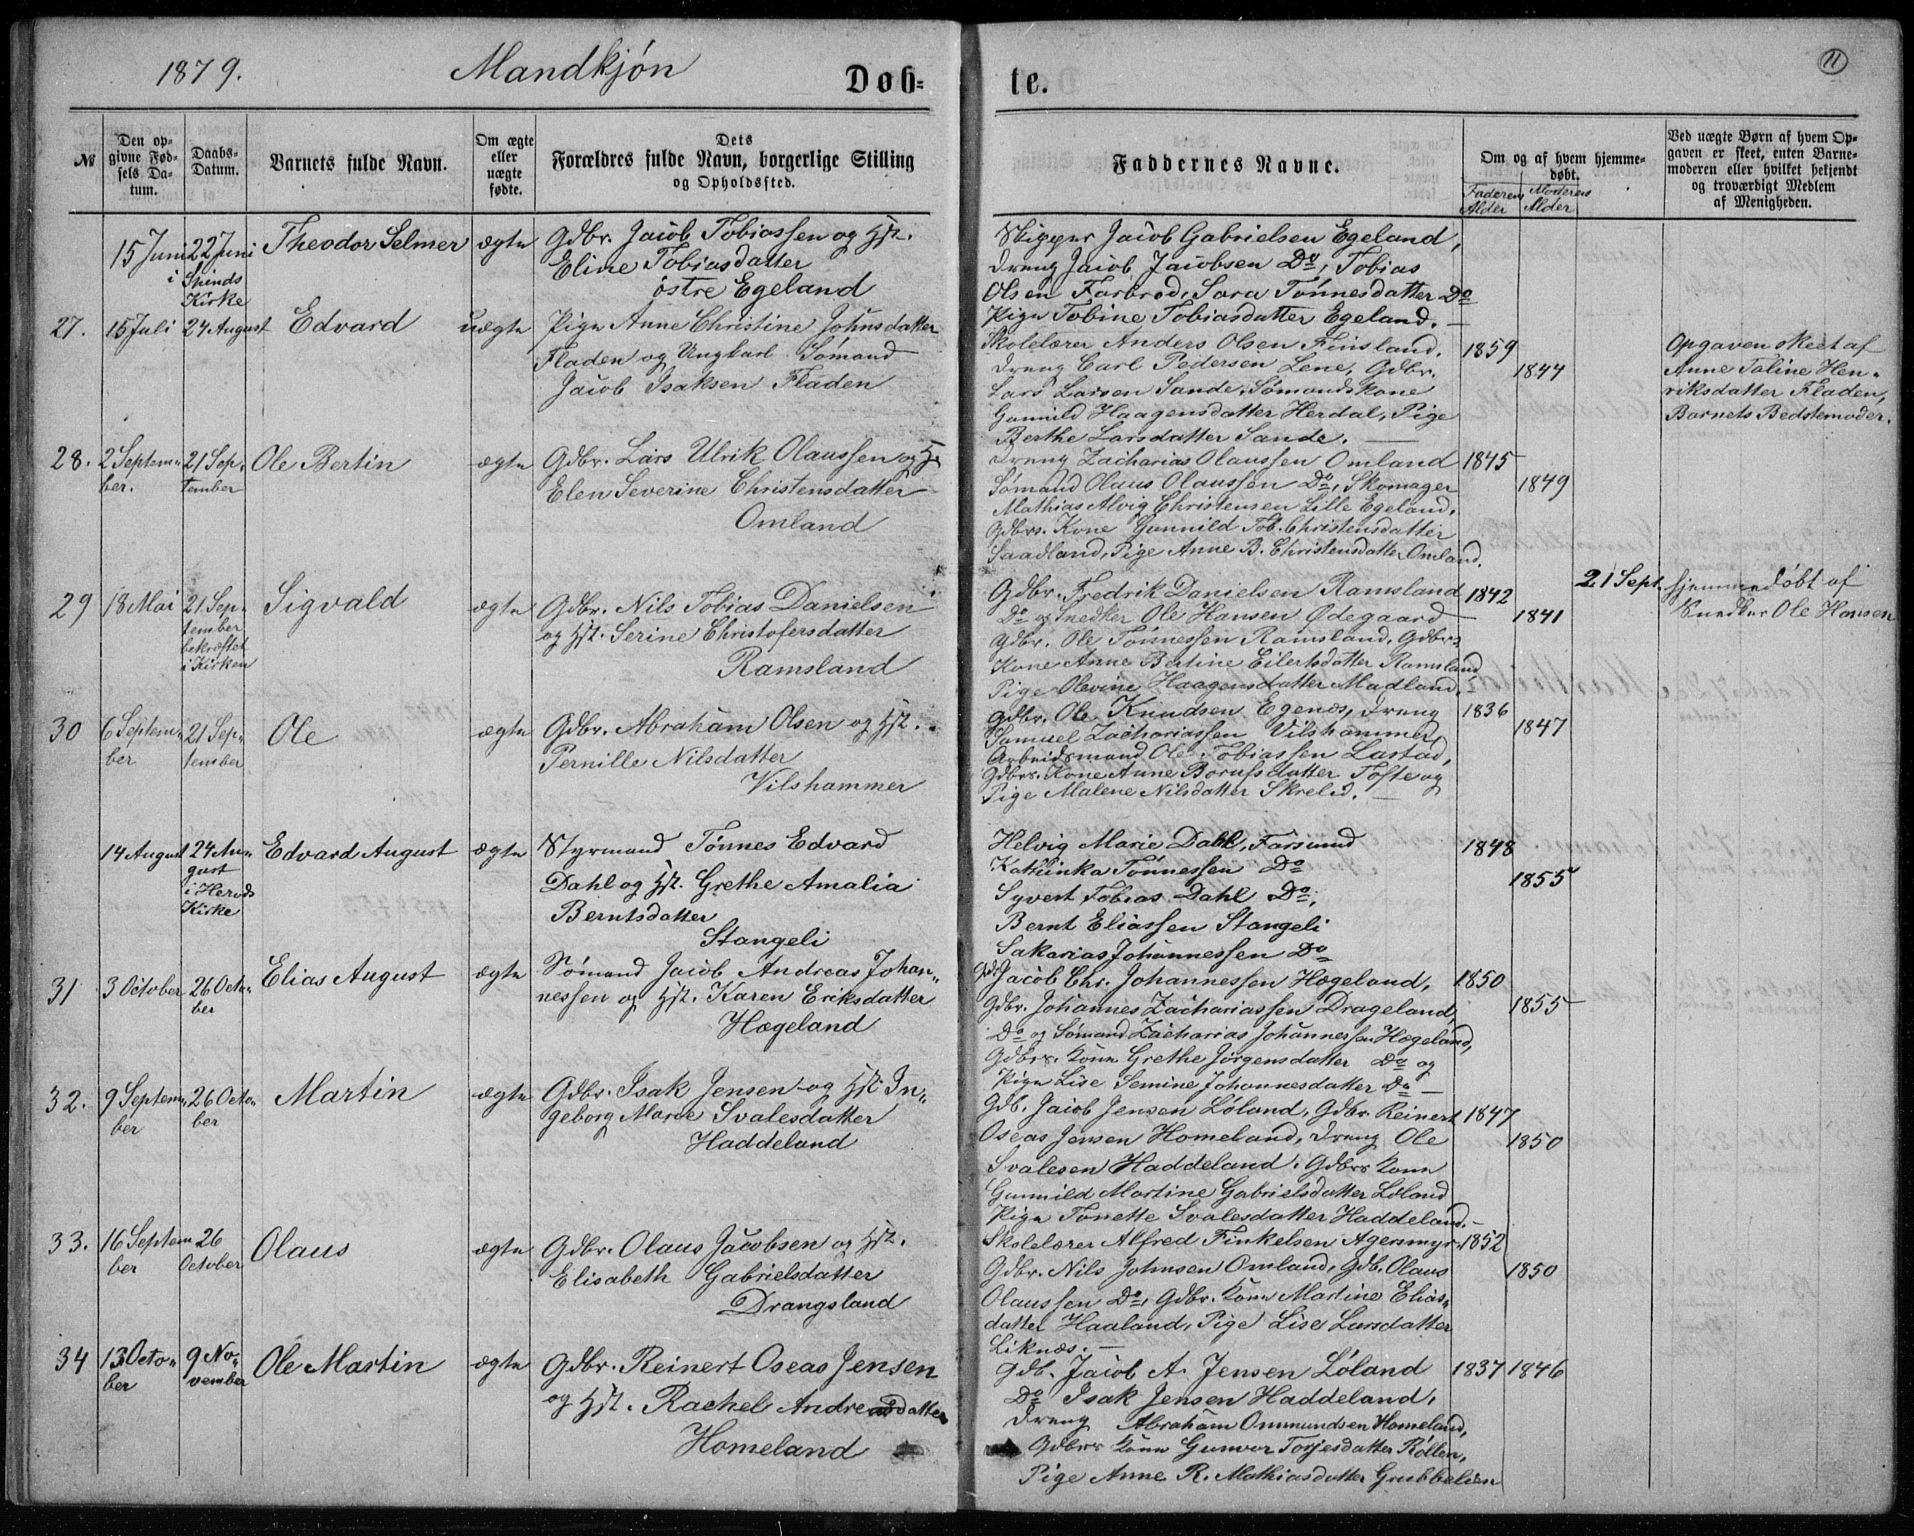 1879.
Mandkjøn
Døb=
te.
11
№
Den op-
givne Fød-
sels Da-
tum.
Daabs-
Datum.
Barnets fulde Navn.
Om ægte
eller
uægte
fødte.
Dets
Forældres fulde Navn, borgerlige Stilling
og Opholdssted.
Faddernes Navne.
Om og af hvem hjemme-
døbt.
Faderens Moderens
Alder Alder
Ved uægte Børn af hvem Op-
gaven er skeet, enten Barne-
moderen eller hvilket bekjendt
og troværdigt Medlem
af Menigheden.
15 Juni 22 Juni
i Spinds
Kirke
Theodor Selmer
ægte
Gdbr. Jacob Tobiassen og Hst.
Eline Tobiasdatter
östre Egeland
Skipper Jacob Gabrielsen Egeland,
Dreng Jacob Jacobsen Do, Tobias
Olsen Farbrod, Sara Tønnesdatter Do
Pige Tobine Tobiasdatter Egeland. —
27. 15 Juli 24 August Edvard
uægte
Pige Anne Christine Johnsdatter
Fladen og Ungkarl Sømand
Jacob Isaksen Fladen
Skolelærer Anders Olsen Finsland,
Dreng Carl Pedersen Lene, Gdbr.
Lars Larsen Sande, Sømandskone
Gunnild Haagensdatter Herdal, Pige
Berthe Larsdatter Sande. —
1859
1844
Opgaven skeet af
Anne Taline Hen-
riksdatter Fladen,
Barnets Bedstemoder.
28. 2 Septem- 21 Sep-
ber. tember
Ole Bertin
ægte
Gdbr. Lars Ulrik Olaussen og H.
Elen Severine Christensdatter
Omland
Dreng Zacharias Olaussen Omland
Sømand Olaus Olaussen Do, Skomager
Mathias Alvig Christensen Lille Egeland,
Gdbrs. Kone Gunnild Tob. Christensdatter
Saadland, Pige Anne B. Christensdatter Omland.
1845
1849
29 18 Mai 21 Sep-
tember
bekræftet
i Kirken
Sigvald
ægte
Gdbr. Nils Tobias Danielsen
og Hst. Serine Christofersdatter
Ramsland
Gdbr. Fredrik Danielsen Ramsland
Do og Snedker Ole Hansen Ødegaard
Gdbr. Ole Tønnessen Ramsland, Gdbrs.
Kone Anne Bertine Eilertsdatter Ramsland
Pige Olevine Haagensdatter Madland.
1842
1841
21 Sept. hjemmedøbt af
Snedker Ole Hansen
30 6 Septem- 21 Sep-
ber tember
Ole
ægte
Gdbr. Abraham Olsen og Hst.
Pernille Nilsdatter
Vilshammer
Gdbr. Ole Knudsen Egenæs, Dreng
Samuel Zachariassen Vilshammer,
Arbeidsmand Ole Tobiassen Lastad,
Gdbrs. Kone Anne Borufsdatter Tofte og
Pige Malene Nilsdatter Skreled. —
1836
1847
14 August 24 Au-
gust
i Herads
Kirke
Edvard August
ægte
Styrmand Tønnes Edvard
Dahl og Hst. Grethe Amalia
Berntsdatter
Stangeli
Helvig Marie Dahl, Farsund
Kathinka Tønnessen Do
Syvert Tobias Dahl Do,
Bernt Eliassen Stangeli
Sakarias Johannessen Do
1848
1855
31 3 October 26 Octo-
ber
Elias August
ægte
Sømand Jacob Andreas Johan-
nessen og Hst. Karen Eriksdatter
Hægeland
Gdb. Jacob Chr. Johannessen Hægeland,
Gdbr. Johannes Zachariassen Drageland,
Do og Sømand Zacharias Johannessen Hægeland,
Gdbrs. Kone Grethe Jørgensdatter Do og
Pige Lise Semine Johannesdatter Do —
1850
1855
32. 9 Septem- 26 Octo-
ber ber
Martin
ægte
Gdbr. Isak Jensen og Hst. In-
geborg Marie Svalesdatter
Haddeland
Gdb. Jacob Jensen Løland, Gdbr. Reinert
Oseas Jensen Homeland, Dreng Ole
Svalesen Haddeland, Gdbrs Kone
Gunnild Martine Gabrielsdatter Løland
Pige Tonette Svalesdatter Haddeland. —
1847
1850
33. 16 Septem 26
ber October
Olaus
ægte
Gdbr. Olaus Jacobsen og Hst.
Elisabeth Gabrielsdatter
Drangsland
Skolelærer Alfred Finkelsen Agersmyr
Gdbr. Nils Johnsen Omland, Gdb. Olaus
Olaussen Do, Gdbr. Kone Martine Elias-
datter Haaland, Pige Lise Larsdatter
Liknæs. —
1852
1850
34 13 Octo- 9 No-
ber vember
Ole Martin
ægte
Gdbr. Reinert Oseas Jensen
og Hst. Rachel Andreasdatter
Homeland
Gdb. Jacob A. Jensen Løland
Do Isak Jensen Haddeland,
Dreng Abraham Ommundsen Homeland,
Gdbrs Kone Gunvor Torjesdatter Røllen,
Pige Anne R. Mathiasdatter Grubbelien
1837 1846